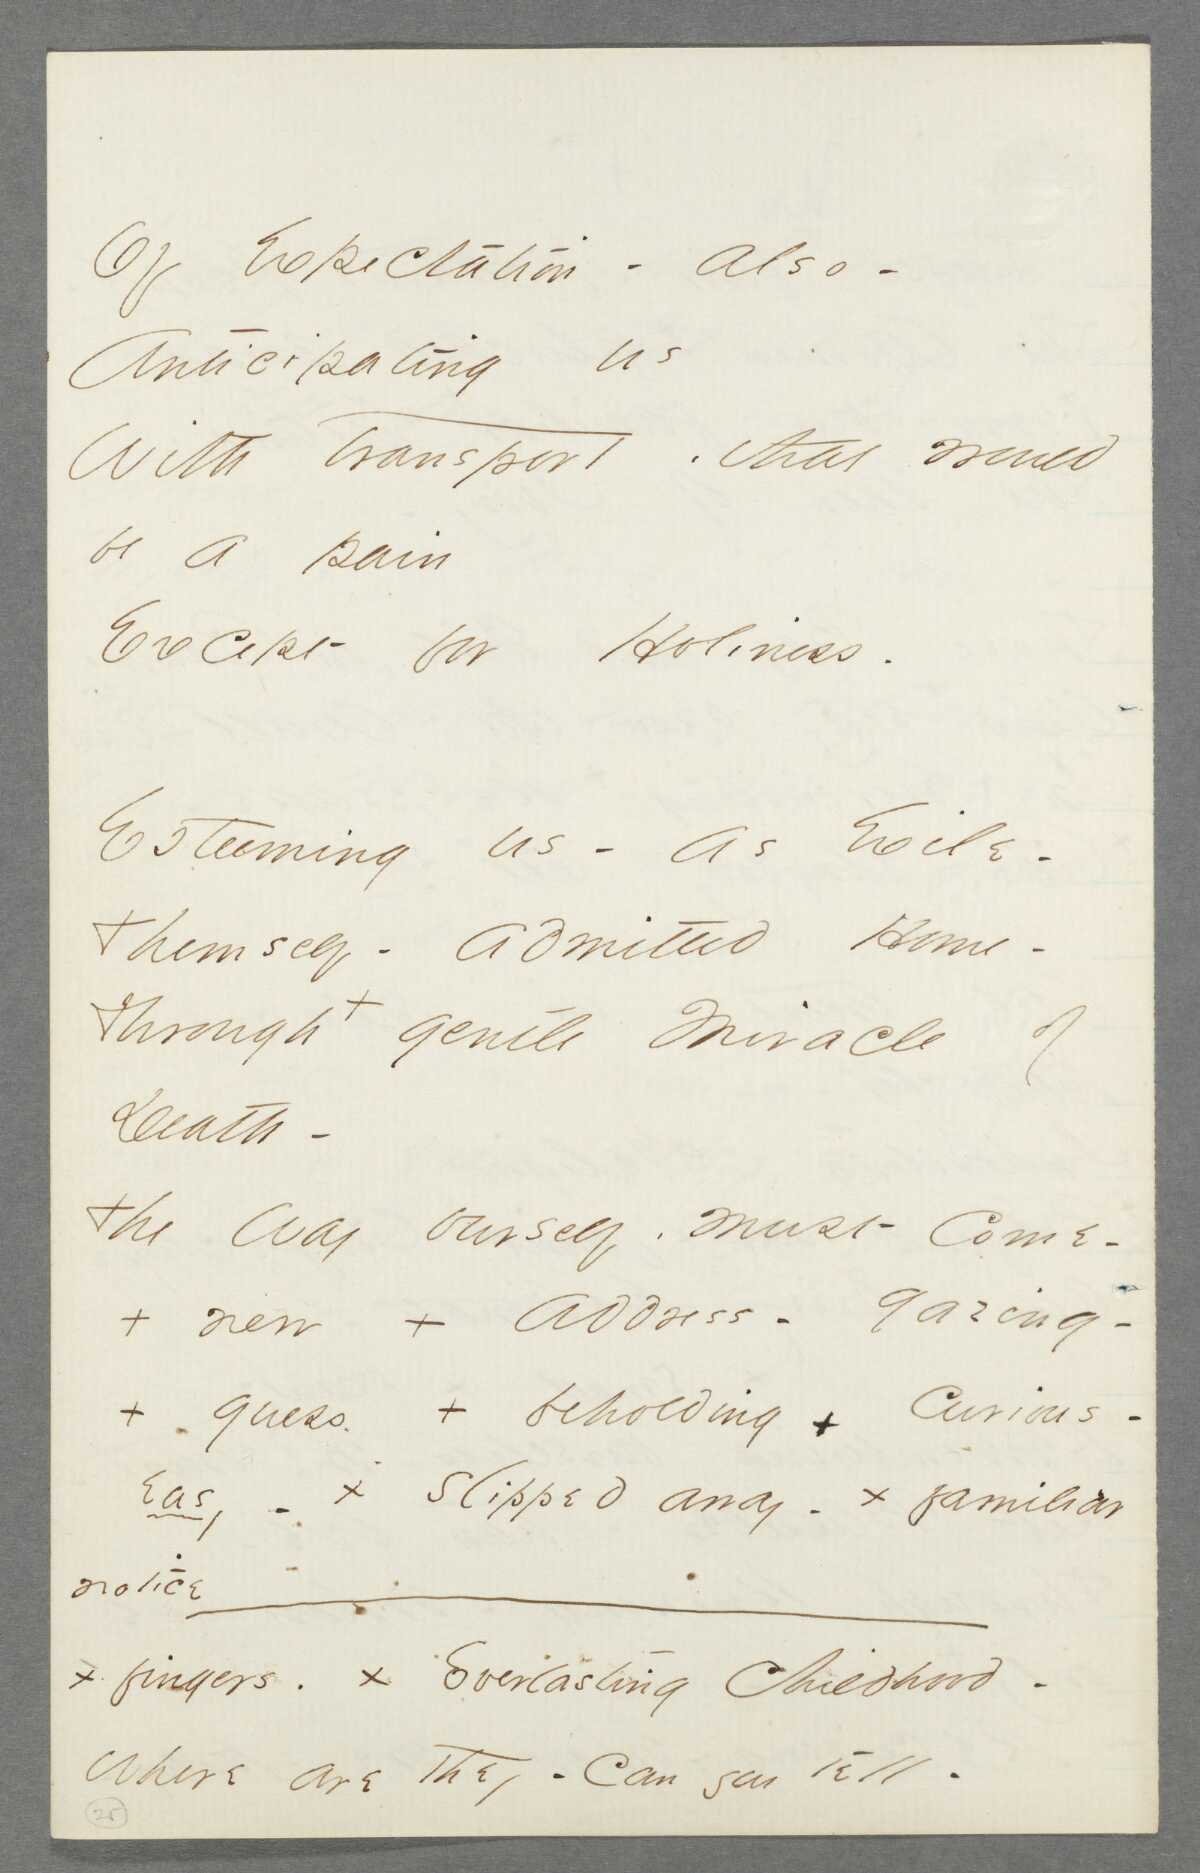 Of Expectation - also -
Anticipating us
With transport . that would
be a pain
Except for Holiness .
Esteeming us - as Exile -
themself - admitted Home -
through + gentle Miracle of
Death -
the Way ourself . must come -
+ new + address - gazing -
+ guess . + beholding + Curious -
easy - + slipped away - + familiar
notice
+ fingers . + Everlasting Childhood -
where are they - Can you tell -
25